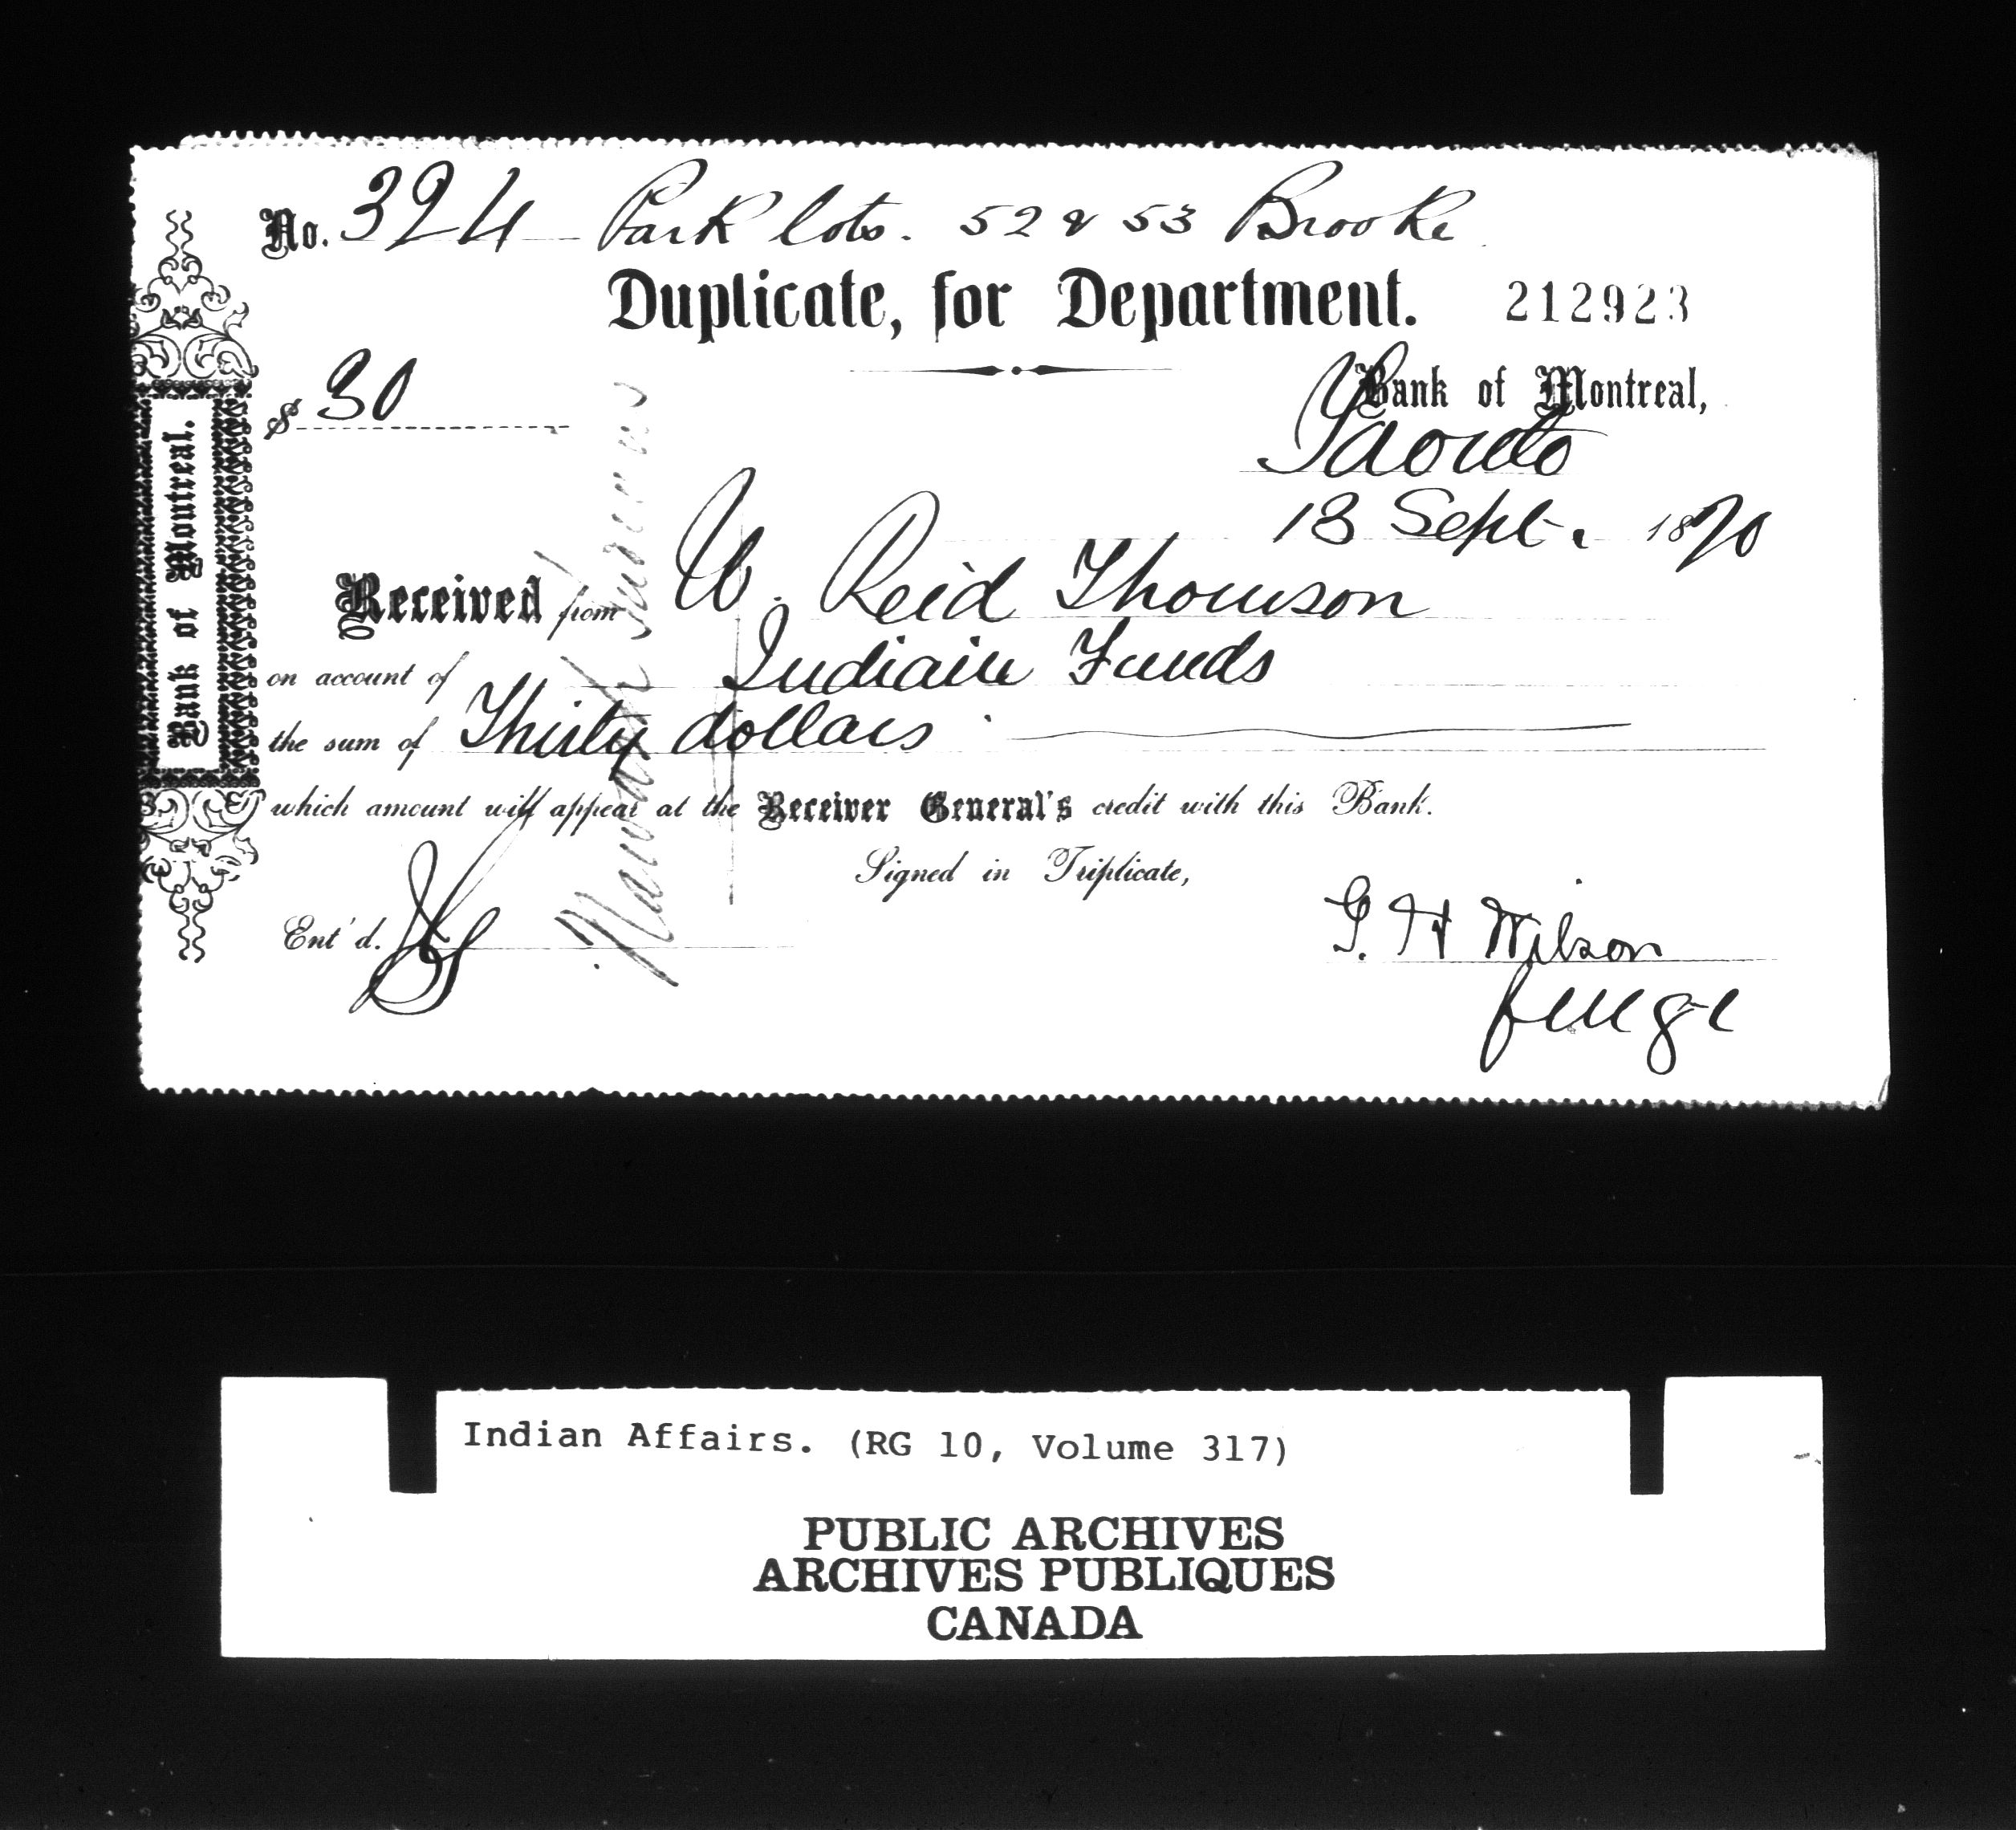 No. 324 Park lots. 52 & 53 Brooke
Duplicate, for Department. 212923
$ 30
Bank of Montreal,
Toronto
13 Sept. 1870
Received from W. Reid Thomson
on account of Indian Funds
the sum of Thirty dollars
which amount will appear at the Receiver General's credit with this Bank.
Signed in Triplicate,
Ent'd.
G. H Wilson
Bank of Montreal.
Indian Affairs. (RG 10, Volume 317)
PUBLIC ARCHIVES
ARCHIVES PUBLIQUES
CANADA